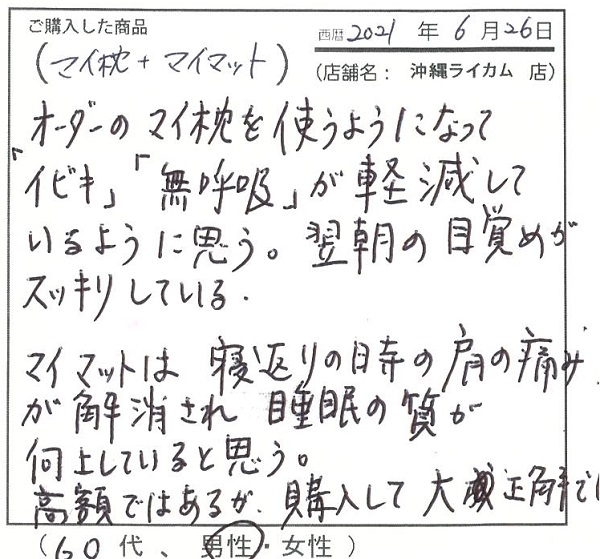 ご購入した商品
西暦 2021 年 6 月 26 日
(マイ枕 + マイマット)
(店舗名: 沖縄ライカム 店)
オーダーの マイ枕を 使うようになって
「イビキ」「無呼吸」が 軽減して
いるように思う。翌朝の 目覚めが
スッキリしている.
マイマットは 寝返りの時の肩の痛み
が 解消され 睡眠の質が
向上していると思う。
高額ではあるが、購入して 大正解で
(60 代 、 男性・女性 )